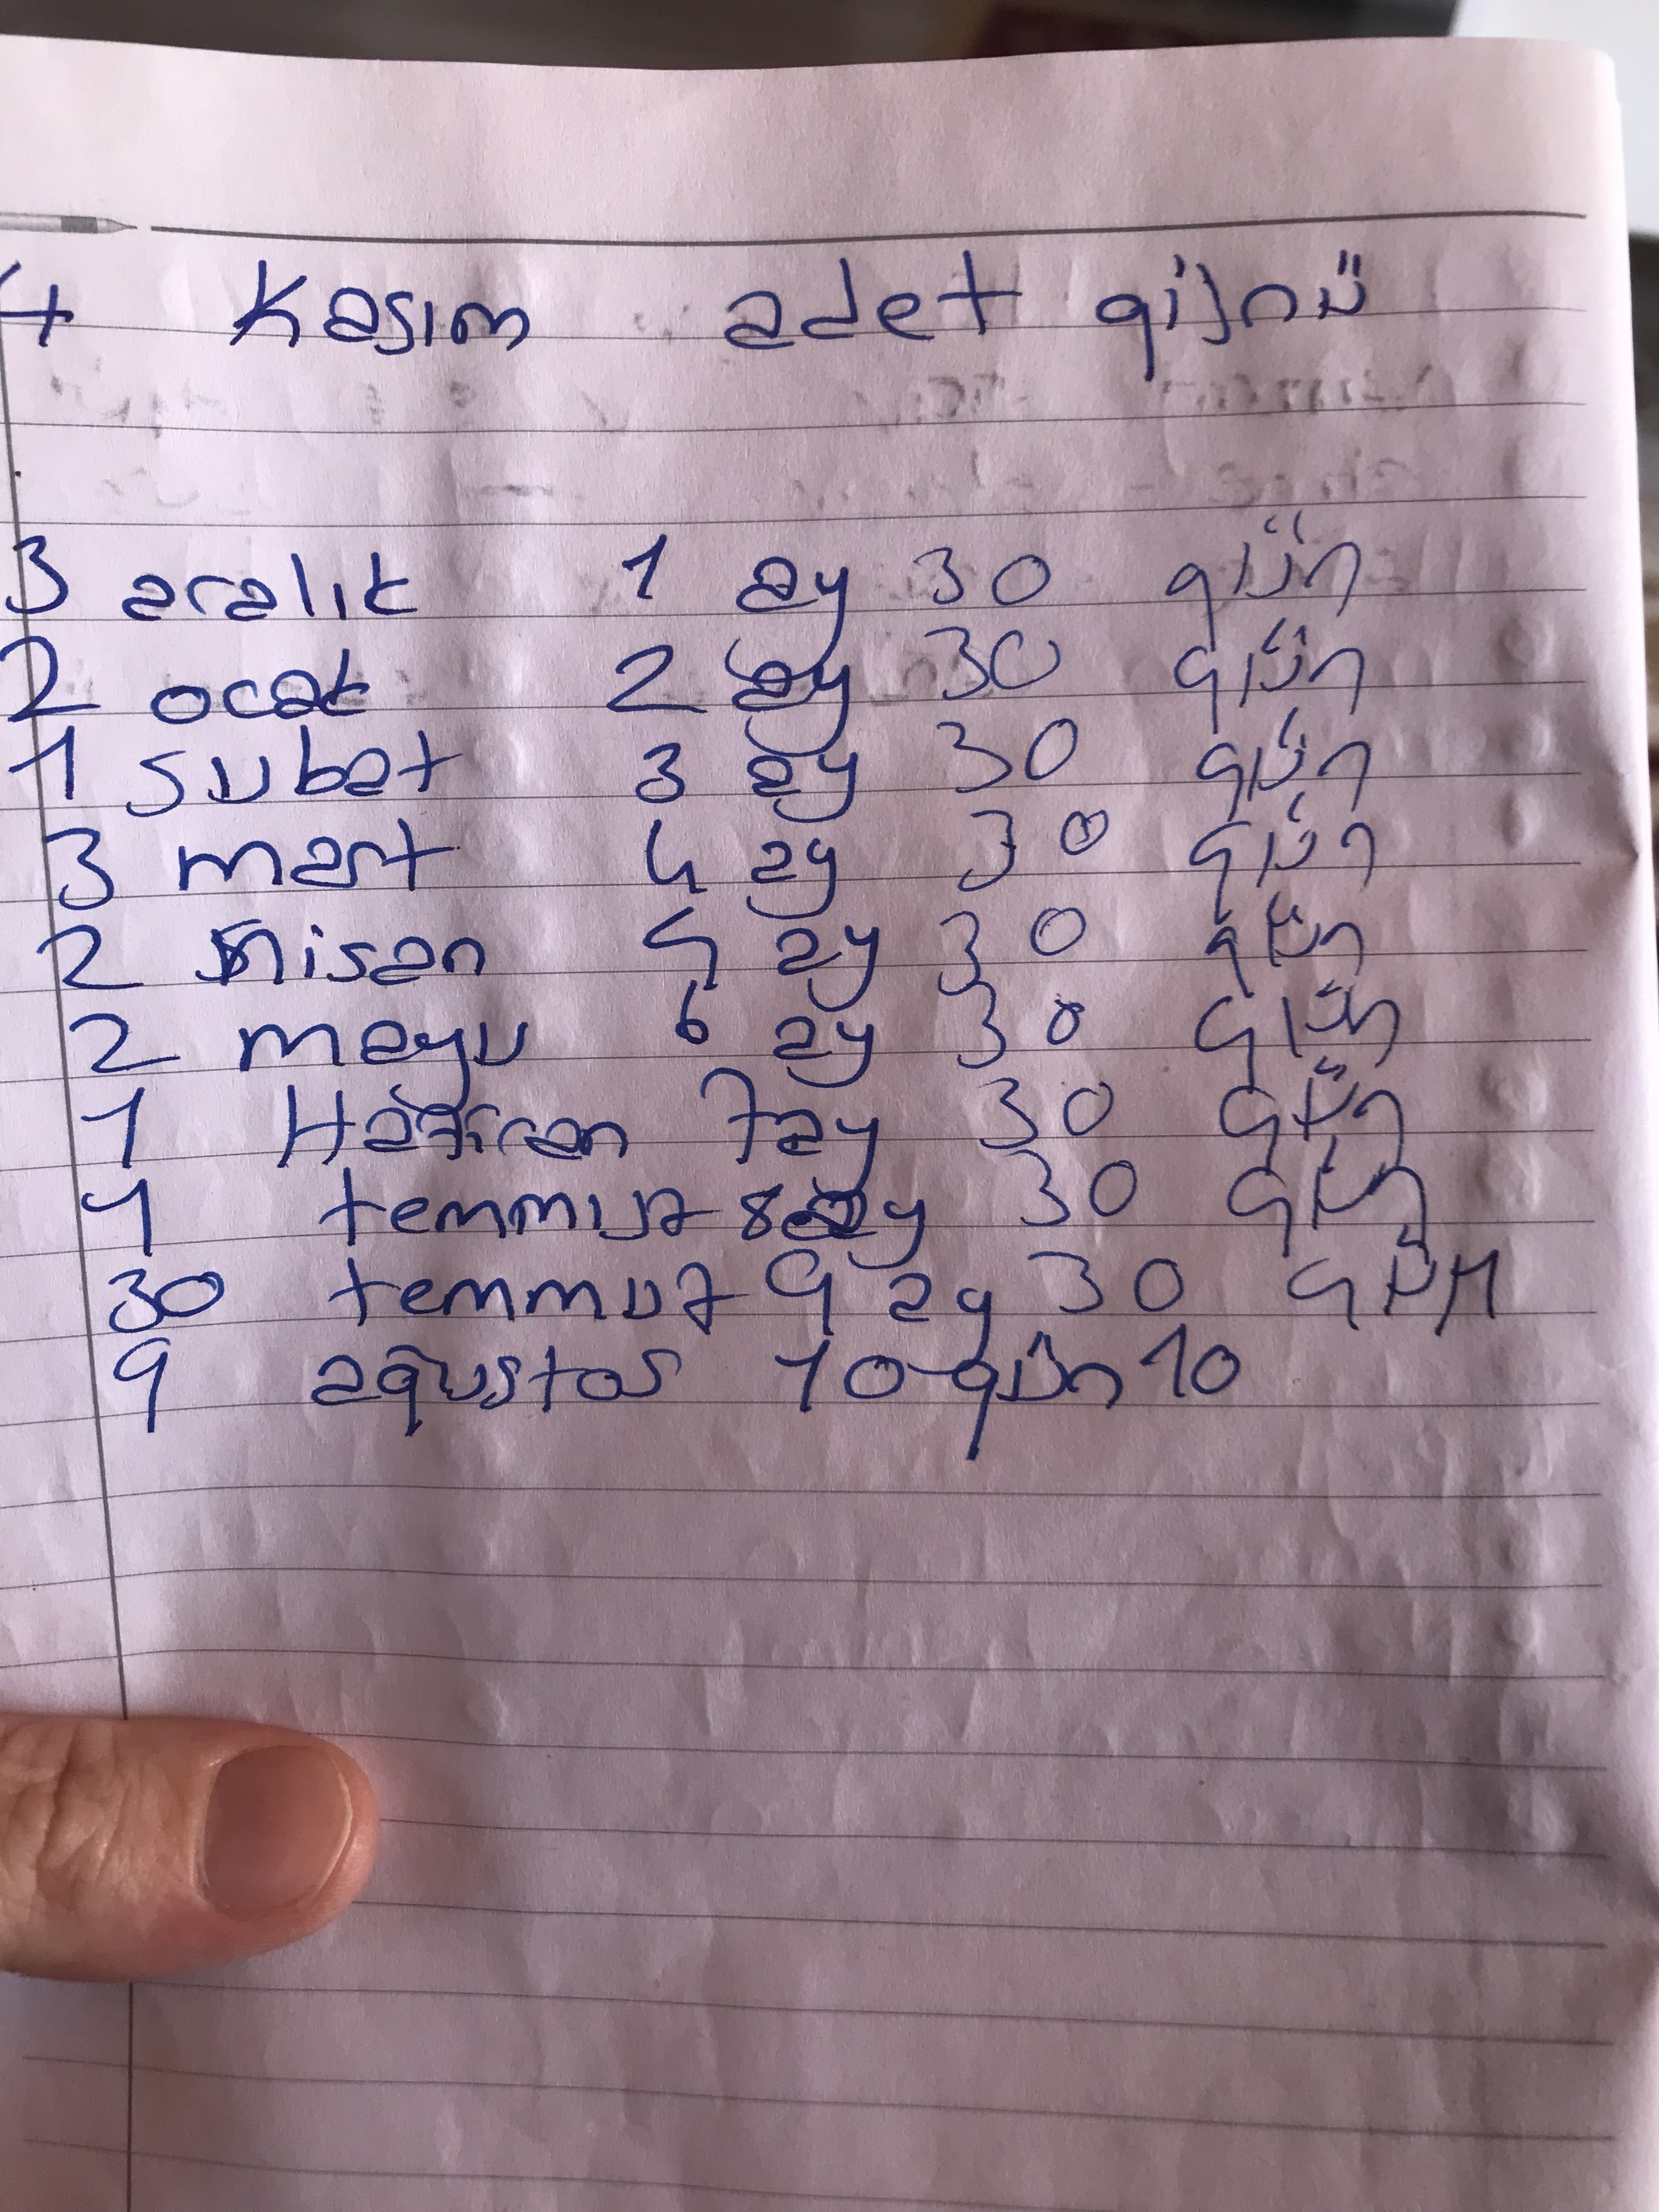 4 Kasım adet günü
3 aralık 1 ay 30 gün
2 ocak 2 ay 30 gün
1 subat 3 ay 30 gün
3 mart 4 ay 30 gün
2 nisan 5 ay 30 gün
2 mayıs 6 ay 30 gün
1 Haziran 7 ay 30 gün
1 temmuz 8 ay 30 gün
30 temmuz 9 ay 30 gün
9 ağustos 10 gün 10